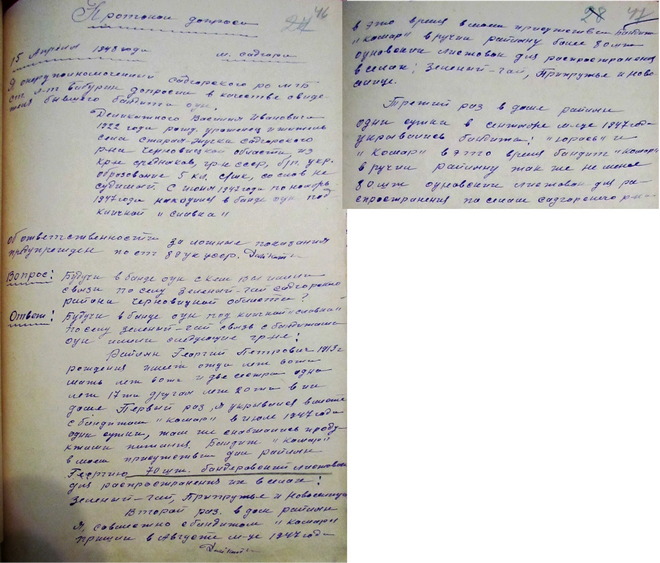 Протокол допроса
16
15 Апреля 1948 года м. Садгора
Я оперуполномоченный Садгорского РО МГБ
ст. л-т допросил в качестве свиде-
теля бывшего бандита оун.
Василия Ивановича
1922 года рожд. уроженец и житель
села Старая-Жучка Садгорского
р-на Черновицкой области, из
кр-н средняков, гр-н ссср, б/п, укр.
образование 5 кл. со слов не
судимый. С июня 1947 года по ноябрь
1947 года находился в банде оун под
кличкой "Славка"
об ответственности за ложные показания
предупрежден по ст 89 ук усср.
Вопрос: Будучи в банде оун с кем Вы имели
связи по селу Зеленый-гай Садгорского
района Черновицкой области?
Ответ: Будучи в банде оун под кличкой "Славка"
по селу Зеленый-гай связь с бандитами
оун имели следующие гр-не:
Райлян Георгий Петрович 1913 г.
рождения имеет отца лет 60ти
мать лет 60ти и две сестры одна
лет 17ти другая лет 20ти в их
доме Первый раз, я укрывался вместе
с бандитом "комар" в июле 1947 года
одни сутки, там же снабжались проду-
ктами питания. Бандит "комар"
в моем присутствии дал райлян
Георгию 70 шт. бандеровских листовок
для распространения их в селах:
Зеленый-гай, Припрутье и Новоселица
Второй раз в дом райлян
Я, совместно с бандитом "комар"
пришли в Августе м-це 1947 года
28 17
в это время в моем присутствии бандит
"комар" вручил райляну более 80 шт.
оуновских листовок для распространения
в селах: Зеленый-гай, Припрутье и Ново-
селице.
Третий раз в доме райлян
одни сутки в сентябре м-це 1947 года
укрывались бандиты: "Юраев" и
"комар" в это время бандит "комар"
вручил райляну так же не менее
80 шт оуновских листовок для ра-
спространения по селам Садгорского ра-